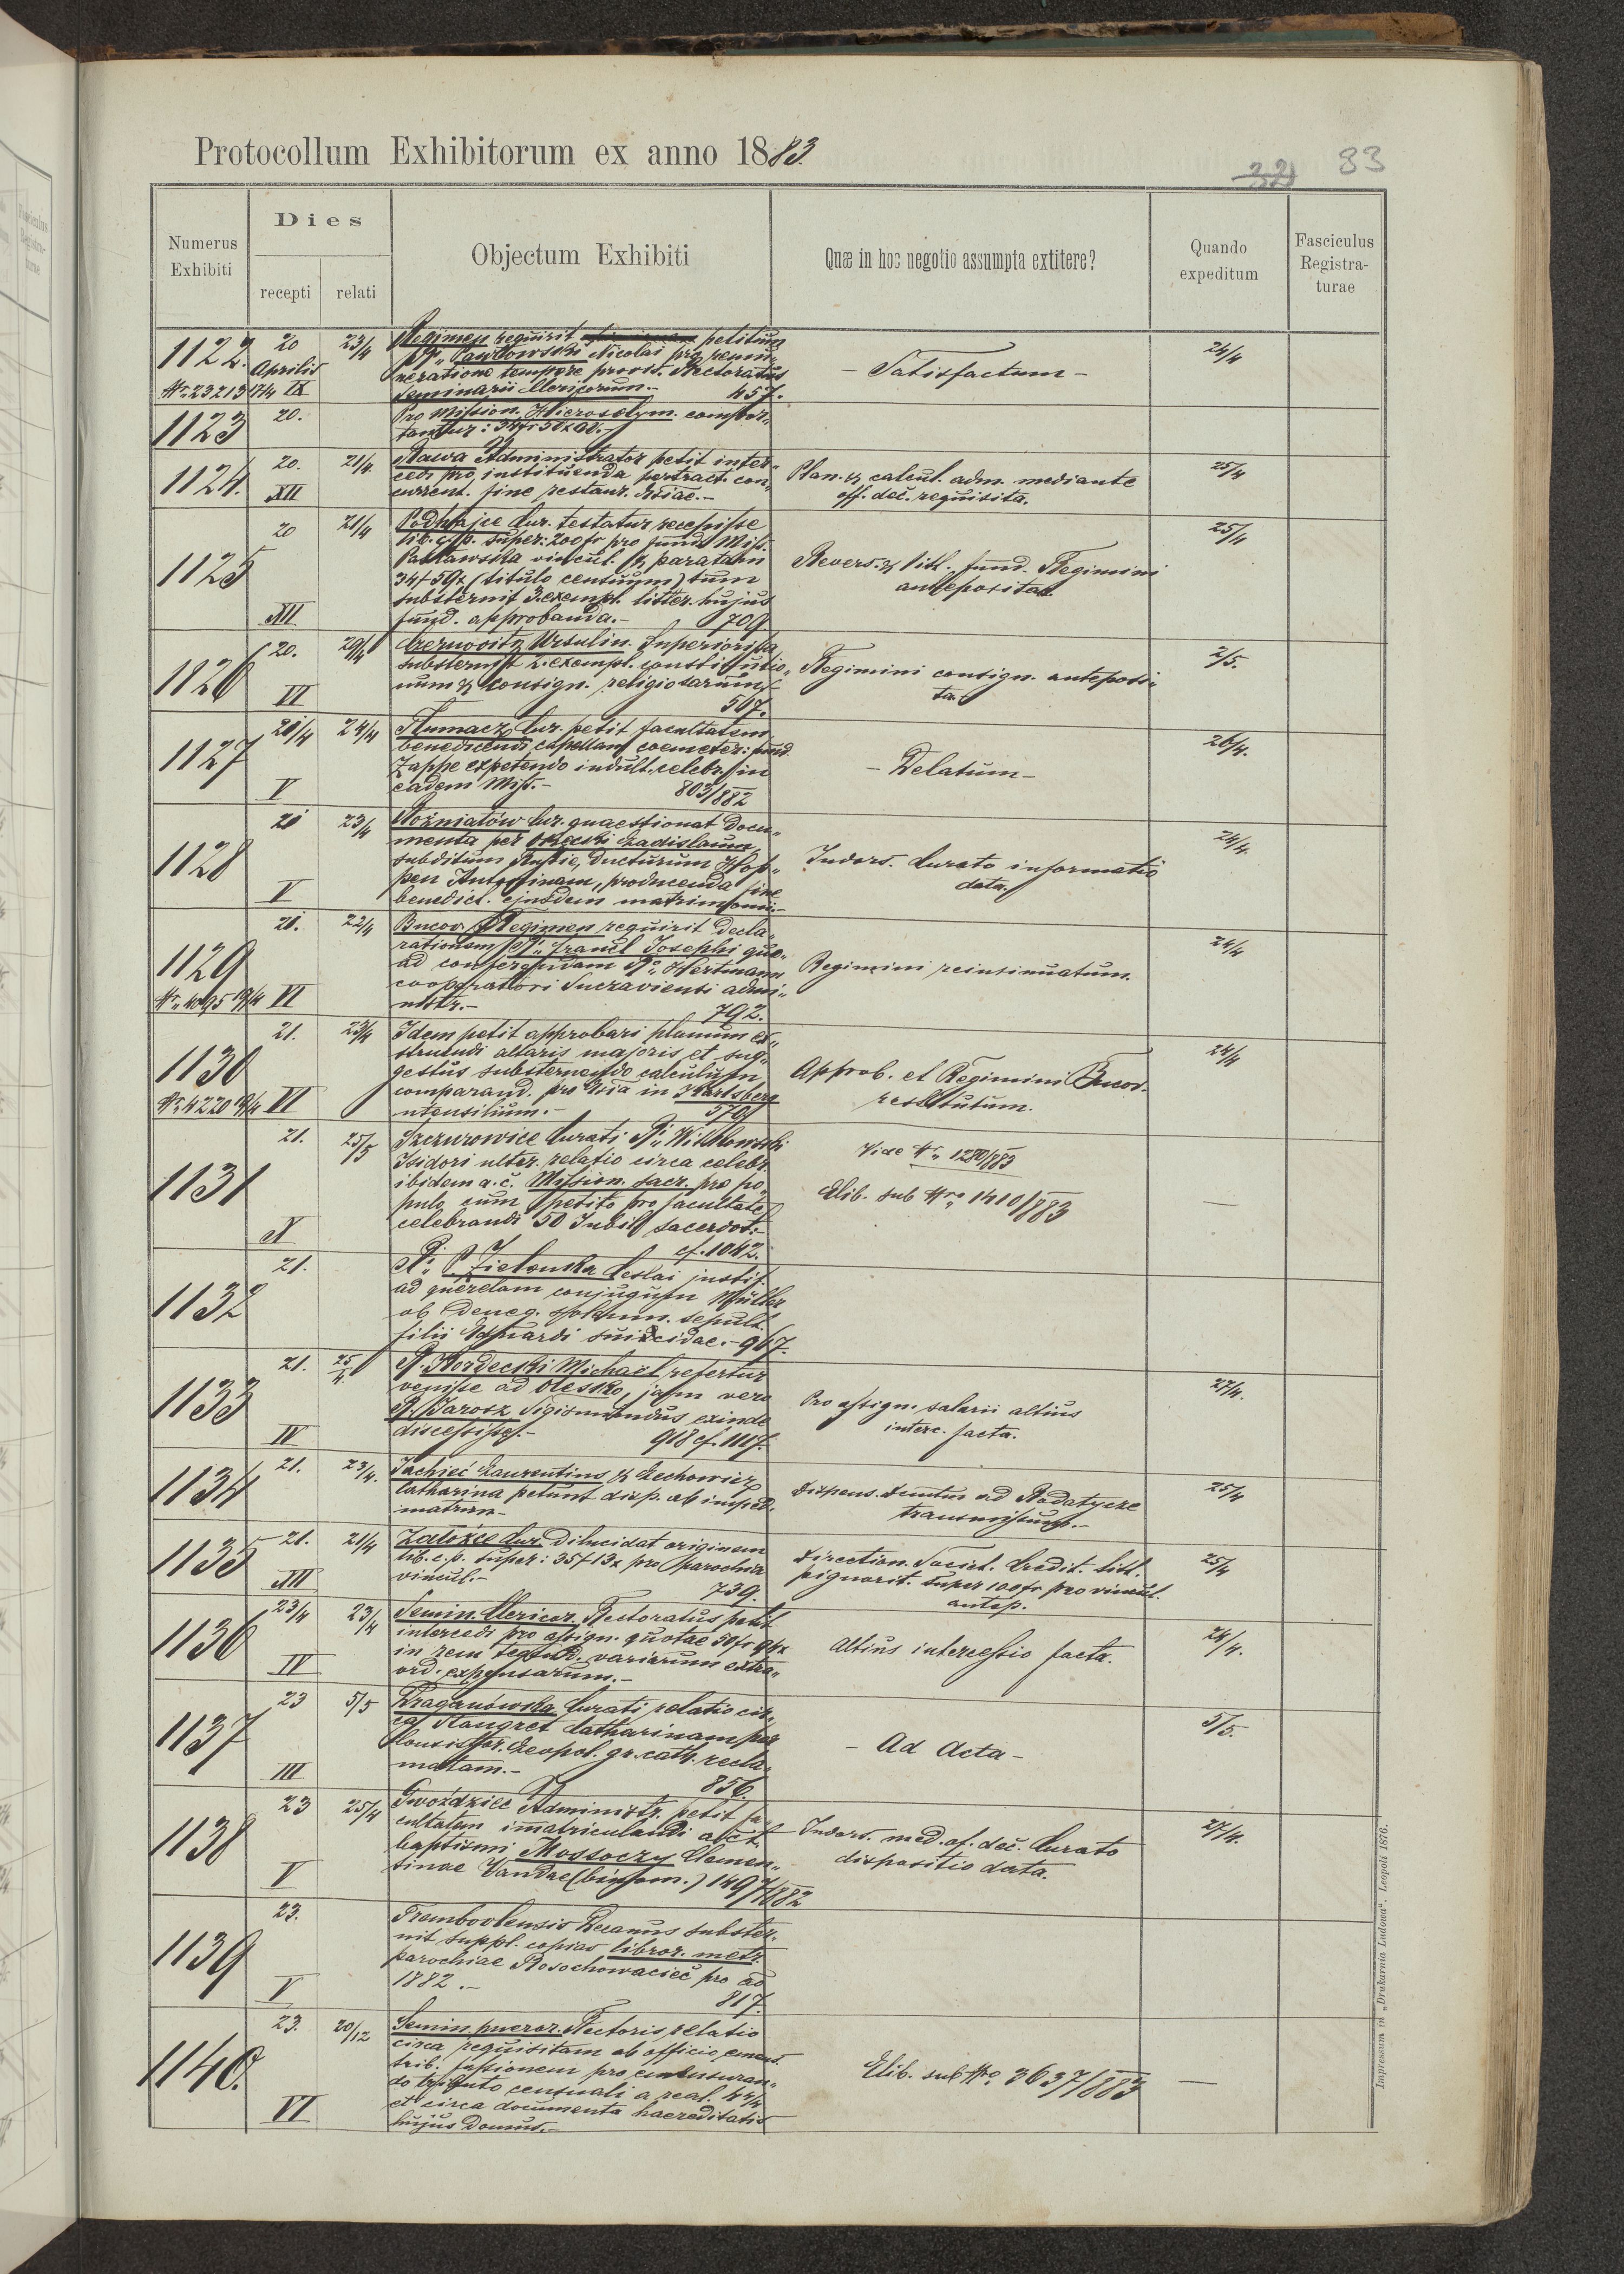 Protocollum Exhibitorum ex anno 1883.
32 83
Numerus Exhibiti
Dies
recepti relati
Objectum Exhibiti
Quæ in hoc negotio assumpta extitere?
Quando expeditum
Fasciculus Registra-
turae
1122. 20 Aprilis 23/4
Nr. 23213 17/4 IX
Regimen requirit petitum
Pawłowski Nicolai pro remu„
neratione tempore provis. Rectoratus
Seminarii Clericorum.- 457.
- Satisfactum -
24/4
1123 20.
Pro Mission. Hierosolym. compor„
tantur: 34fr 50x av.-
1124. 20. 21/4 XII
Rawa Administrator petit inter„
cedi pro instituenda pertract. con„
current. fine restaur. Eccliae.-
Plan. & calcul. adm. mediante
off. dec. requisita.
25/4
1125 20 21/4 XII
Podhajce Cur. testatur recepisse
lib. c. p. super: 200fr pro fund. Miss.
vincul. & paratam
34f 59x (titulo censuum) tum
substernit 3. exempl. litter. hujus
fund. approbanda.- 709.
Revers. & litt. fund. Regimini
antepositae.
25/4
1126 20. 29/4 VI
Czernovitz Ursulin. Superiorissa
substernit 2. exempl. constitutio„
num & consign. religiosarum.-
567.
Regimini consign. anteposi„
ta.
2/5.
1127 20/4 24/4 V
Tłumacz Cur. petit facultatem
benedicendi capellam coemeter: fund.
Zappe expetendo indult. celebr. in
eadem Miss.- 803/882
- Delatum -
26/4.
1128 20 23/4 V
Rożniatów Cur. quaestionat docu„
menta per Ladislaum,
subditum Russie, ducturum Hop„
pen Antoninam, producenda fine
benedict. ejusdem matrimonii.-
Indors. Curato informatio
data.
24/4.
1129 20. 22/4
Nr. 4095 19/4 VI
Bucov. Regimen requirit decla„
rationem Francl Josephi quo„
ad conferendam Hertmann
cooperatori Suczaviensi admi„
nistr.- 792.
Regimini reinsinuatum.
24/4
1130 21. 23/4
Nr. 4220 19/4 VI
Idem petit approbari planum ex„
struendi altaris majoris et sug„
gestus substernendo calculum
comparand. pro Eccia in Karlsberg
utensilium.- 570/
Approb. et Regimini Bucov.
restitutum.
24/4
1131 21. 25/5 X
Szczurowice Curati
Isidori ulter. relatio circa celebr.
ibidem a. c. Mission. sacr. pro po„
pulo cum petito pro facultate
celebrandi 50 Jubil. sacerdot.-
cf. 1042.
Vide Nr. 1280/883
Elib. sub Nro 1410/883
—
1132 21.
P. Zielonka justif.
ad querelam conjugum Müller
ob deneg. solemn. sepult.
filii Eduardi suicidae.- 967.
1133 21. 25/4. IV
R. Kordecki Michaël refertur
venisse ad Olesko, jam vero
R. Jarosz Sigismundus exinde
discessisse.- 918 cf. 1117.
Pro assign. salarii altius
interc. facta.
27/4.
1134 21. 23/4.
Jachieć Laurentius & Lechowicz
Catharina petunt disp. ab imped.
matrim.-
Dispens. ad Rodatycze
transmissum.-
25/4
1135 21. 21/4 XII
Załoźce Cur. dilucidat originem
lib. c. p. super: 35f 13x pro parochia
vincul.- 739.
Direction. Societ. Credit. litt.
pignorit. super 100fr pro vincul.
antep.
25/4
1136 23/4 23/4 IV
Semin. Clericor. Rectoratus petit
intercedi pro assign. quotae 50fr 94x
in rem variarum extra„
ord. expensarum.-
Altius intercessio facta.
24/4.
1137 23 5/5 III
Draganówka Curati relatio cir„
ca Catharinam per
Consistor. Leopol. gr. cath. recla„
matam.- 856.
- Ad Acta -
5/5.
1138 23 25/4 V
Gwoździec Administr. petit fa„
cultatem immatriculandi act.
baptismi Mossoczy Clemen„
tinae Vandae (binom.) 1497/882
Indors. med. of. dec. Curato
dispositio data.
27/4.
1139 23. V
Trembovlensis Decanus subster„
nit suppl. copias libror. metr.
parochiae Rosochowaciec pro ao
1882.- 817.
1140. 23. 20/12 VI
Semin. pueror. Rectoris relatio
circa requisitam ab officio
trib. fassionem pro
do tributo censuali a real. 44/4
et circa documenta haereditatis
hujus Domus.-
Elib. sub Nro. 3637/883
—
Impressum in „Drukarnia Ludowa“. Leopoli 1876.